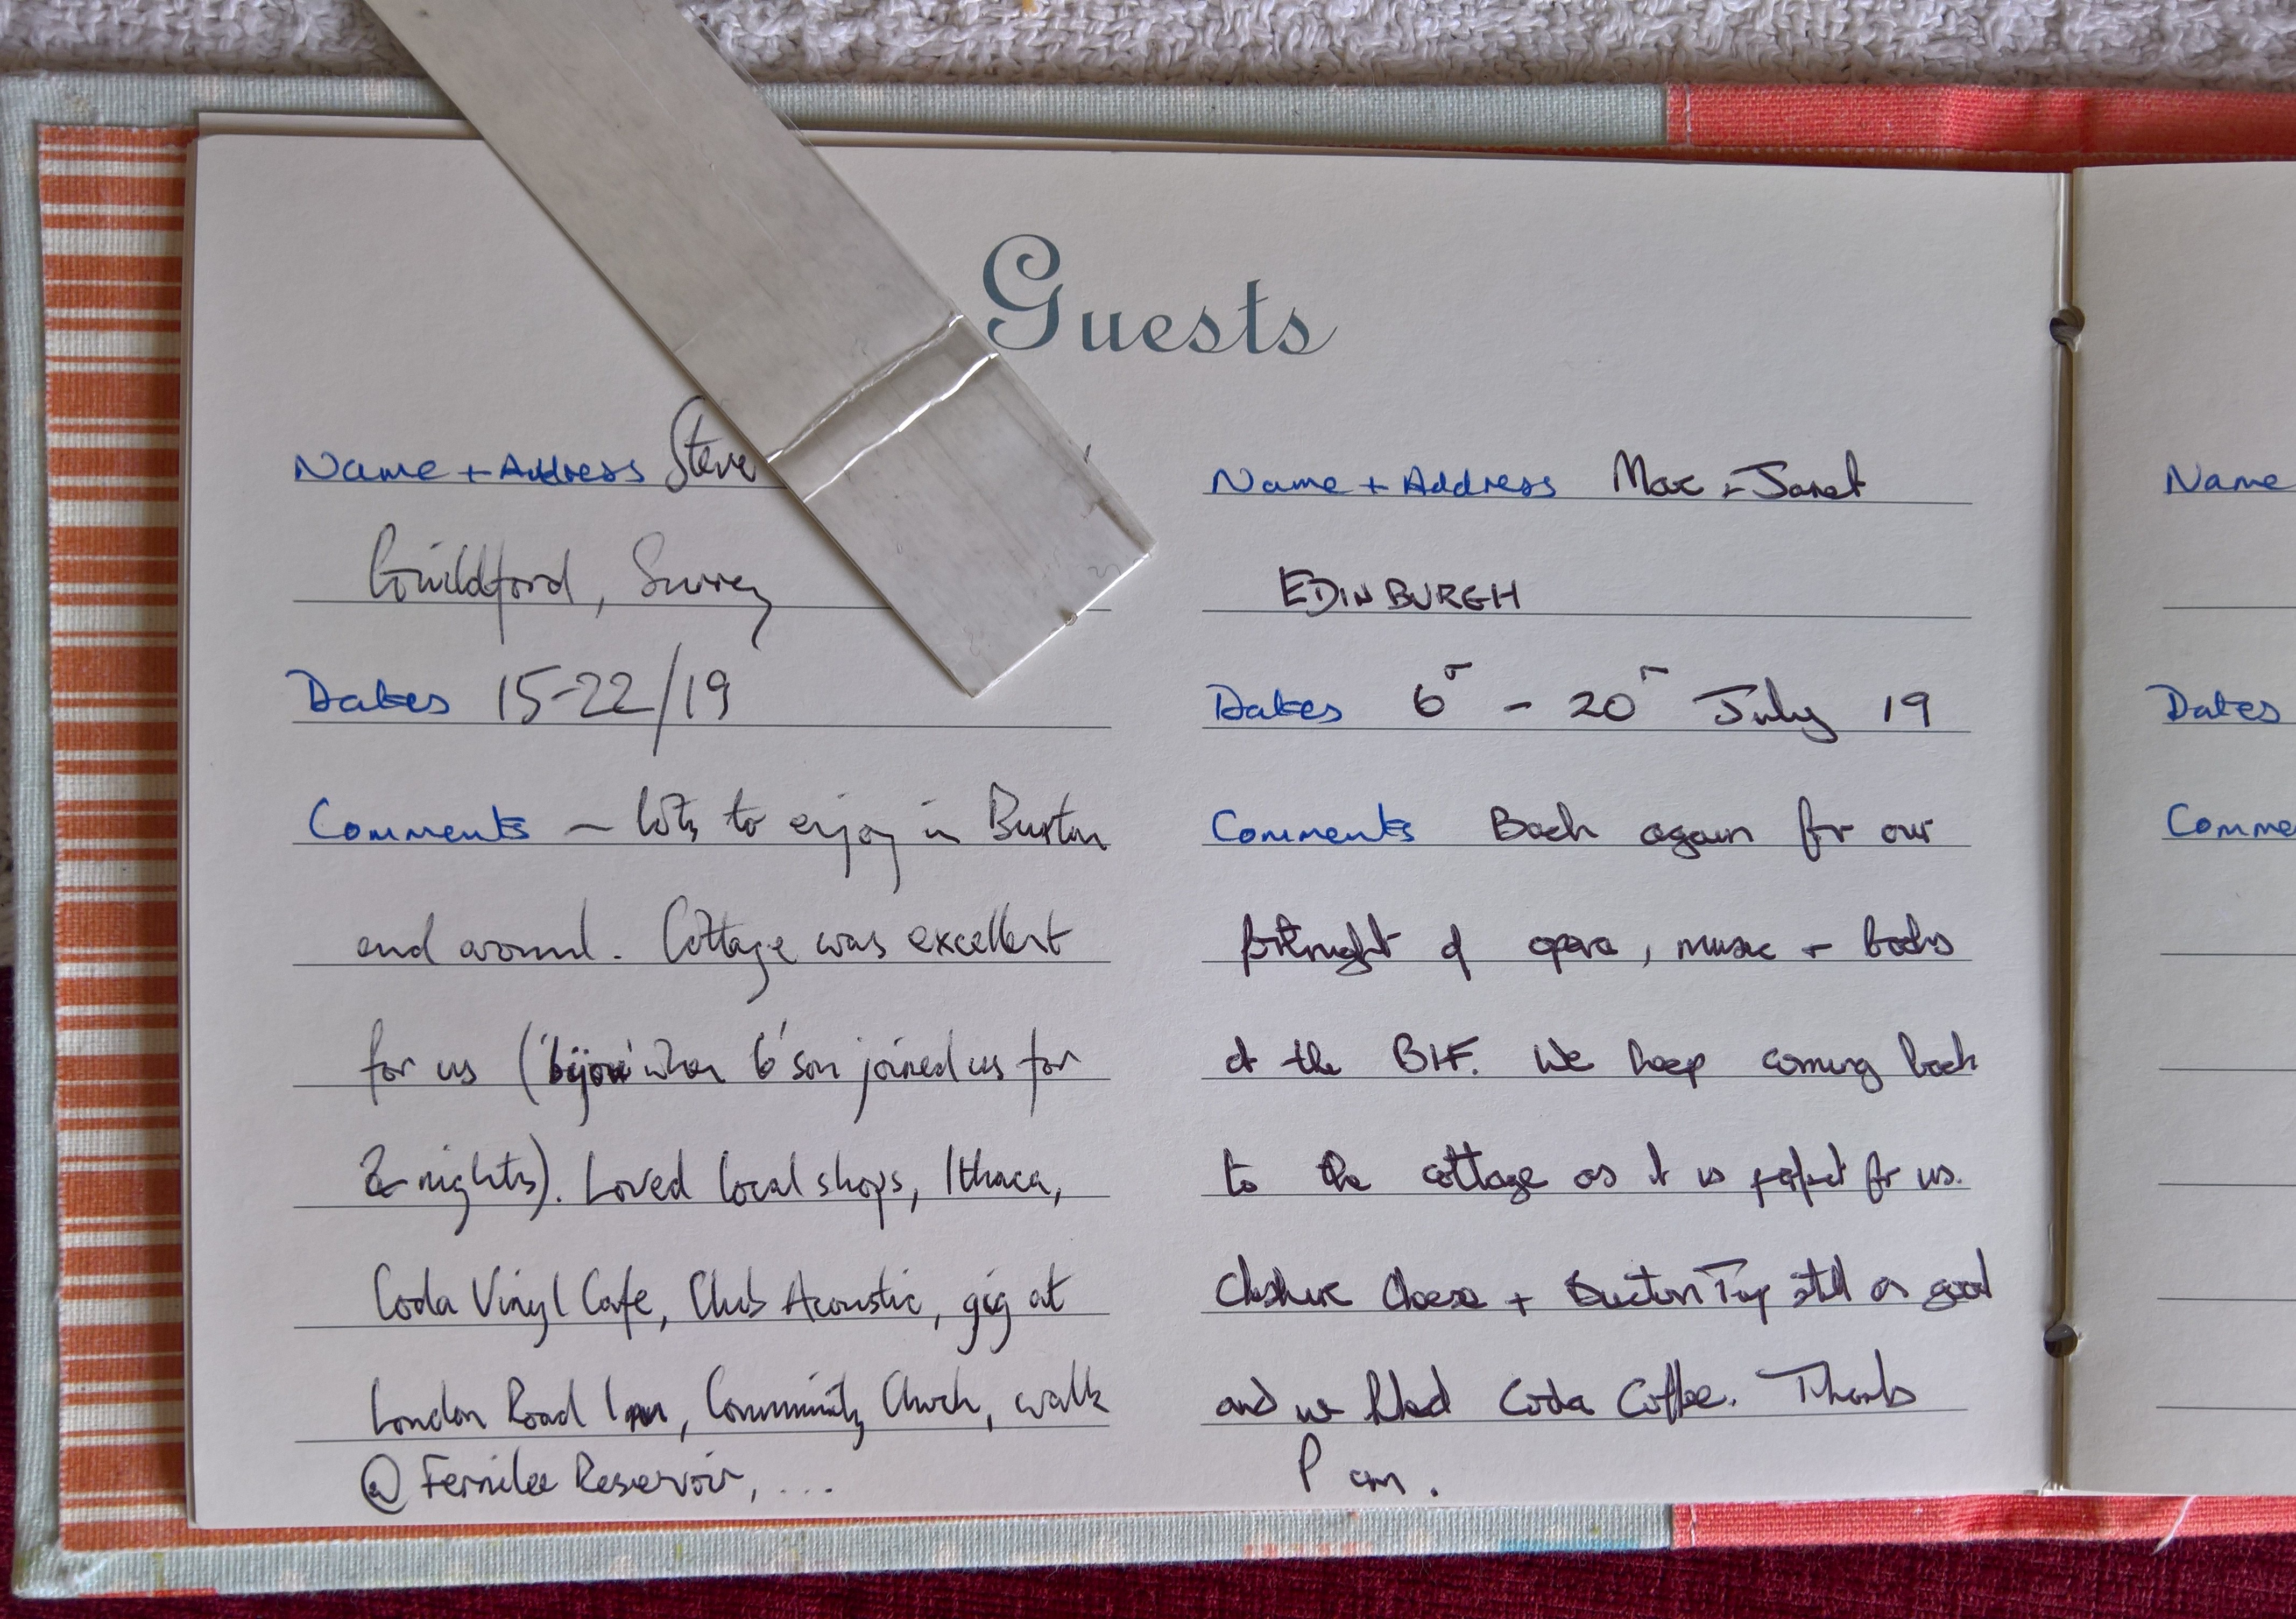 Guests
Name + Address Steve
Guildford, Surrey
Dates 15-22/19
Comments – lots to enjoy in Buxton
and around. Cottage was excellent
for us ('bijou' when 6' son joined us for
2 nights). Loved local shops, Ithaca,
Coda Vinyl Cafe, Club Acoustic, gig at
London Road Inn, Community Church, walk
@ Fernilee Reservoir, ...
Name + Address Mac + Janet
EDINBURGH
Dates 6 - 20 July 19
Comments Back again for our
fortnight of opera, music + books
at the BIF. We keep coming back
to the cottage as it is perfect for us.
Cheshire Cheese + Buxton Tap still as good
and we liked Coda Coffee. Thanks
Pam.
Name
Dates
Comme